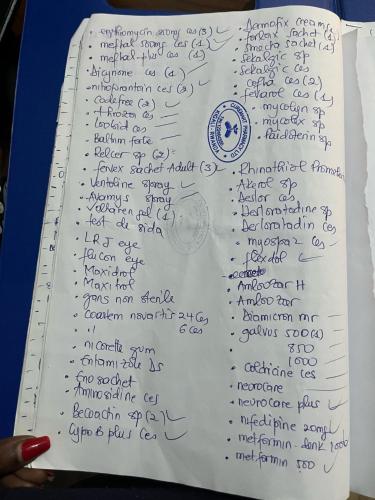 erythromycin 500mg ces (3)
meftal 500mg ces (1)
meftal plus ces (1)
Dicynone ces (1)
nitrofurantoin ces (2)
Codefree (2)
ces
Balbim forte
Relcer sp (2)
forlex sachet Adult (3)
Ventoline spray
Avamys spray
Voltaren gel (1)
test de sida
LRJ eye
flucon eye
Maxidrol
Maxitrol
gans non sterile
Coartem novartis 24 Ces
11 6 Ces
nicorette gum
Entamizole DS
Eno sachet
Aminosidine ces
Becoactin sp (2)
Cypro B plus Ces
Dermofix cream
forlax sachet (1)
smecta sachet (4)
Sekalgic sp
Sekalgic ces
cefpa ces (2)
fevarol ces (1)
mycotyn sp
mycotex sp
sp
Rhinathiol Promethazin
Akerol sp
Deslor ces
Desloratadine sp
Desloratadin ces
myospaz ces
flexdol
Amlozaar H
Amlozaar
Diamicron mr
galvus 500 (1)
850
1000
Colchicine ces
neurocare
neurocare plus
nifedipine 20mg
metformin-denk 1000
metformin 500